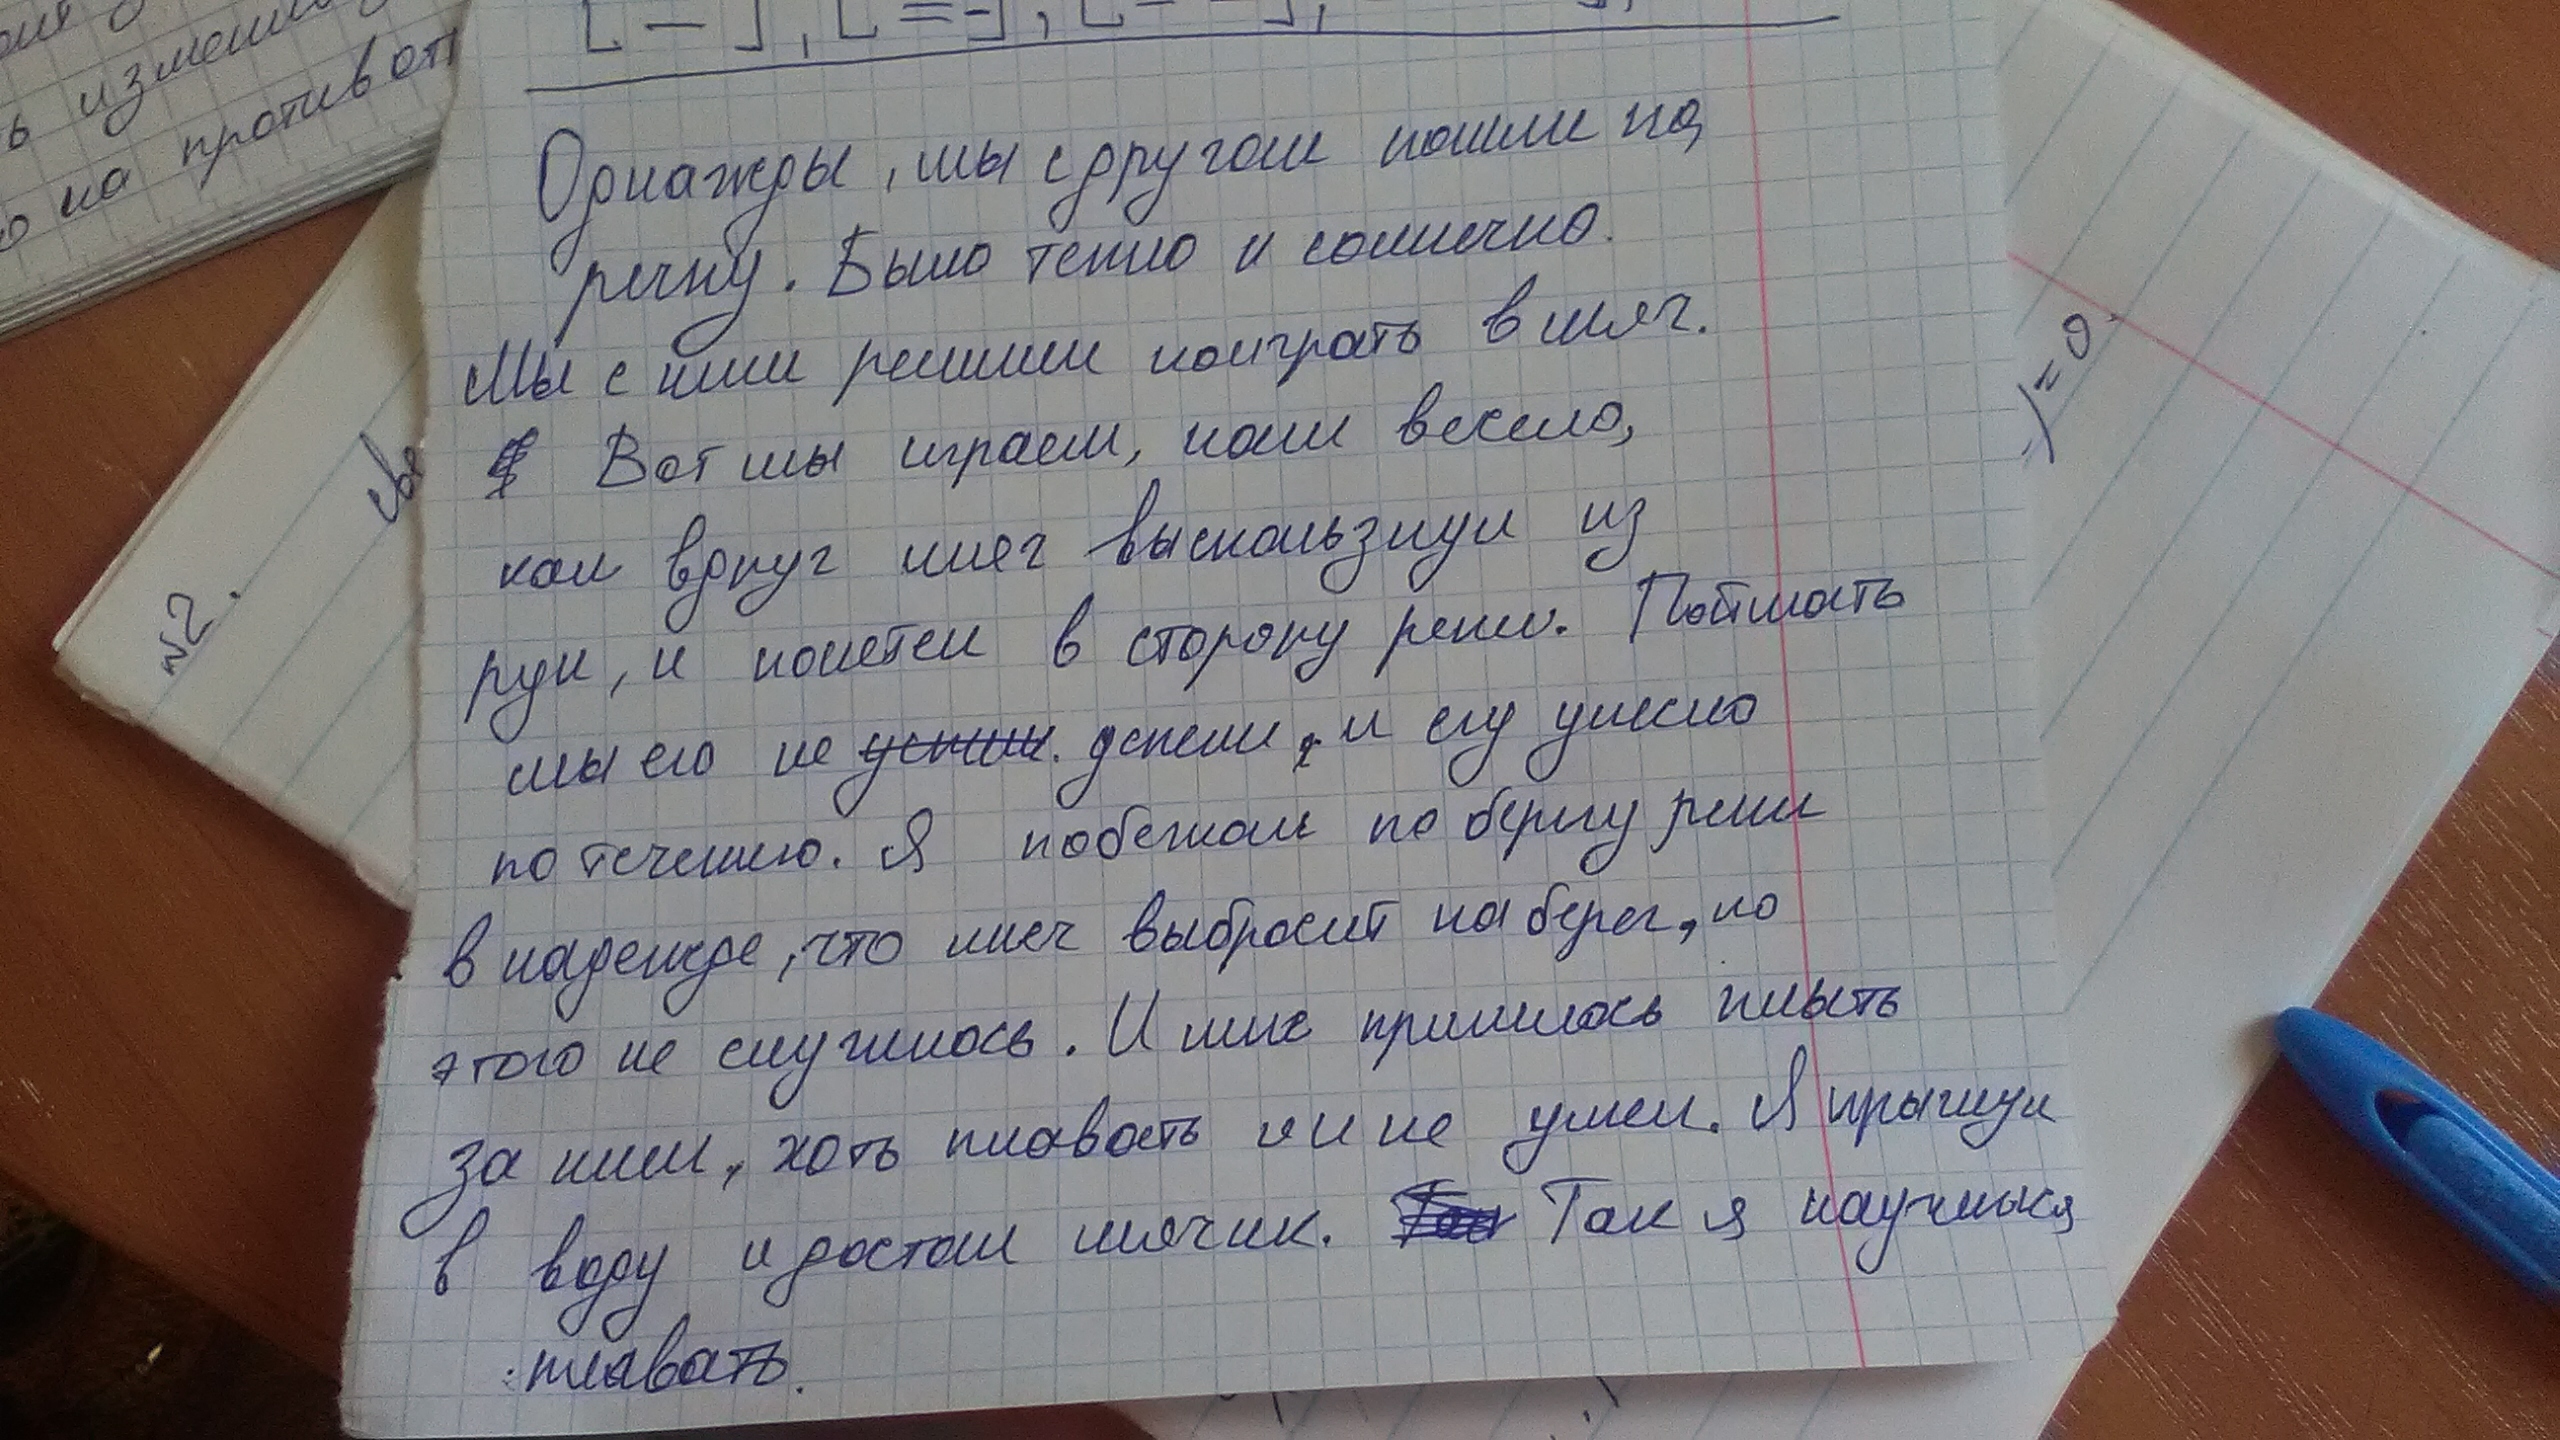 ь измени
о на против
[ — ], [ = - ], [ - - ],
Однажды, мы с другом пошли на
речку. Было тепло и солнечно.
Мы с ним решили поиграть в мяч.
Вот мы играем, нам весело,
как вдруг мяч выскользнул из
рук, и полетел в сторону реки. Поймать
мы его не успели, и его унесло
по течению. Я побежал по берегу реки
в надежде, что мяч выбросит на берег, но
этого не случилось. И мне пришлось плыть
за ним, хоть плавать я и не умел. Я прыгнул
в воду и достал мячик. Так я научился
плавать.
№2.
)=0.